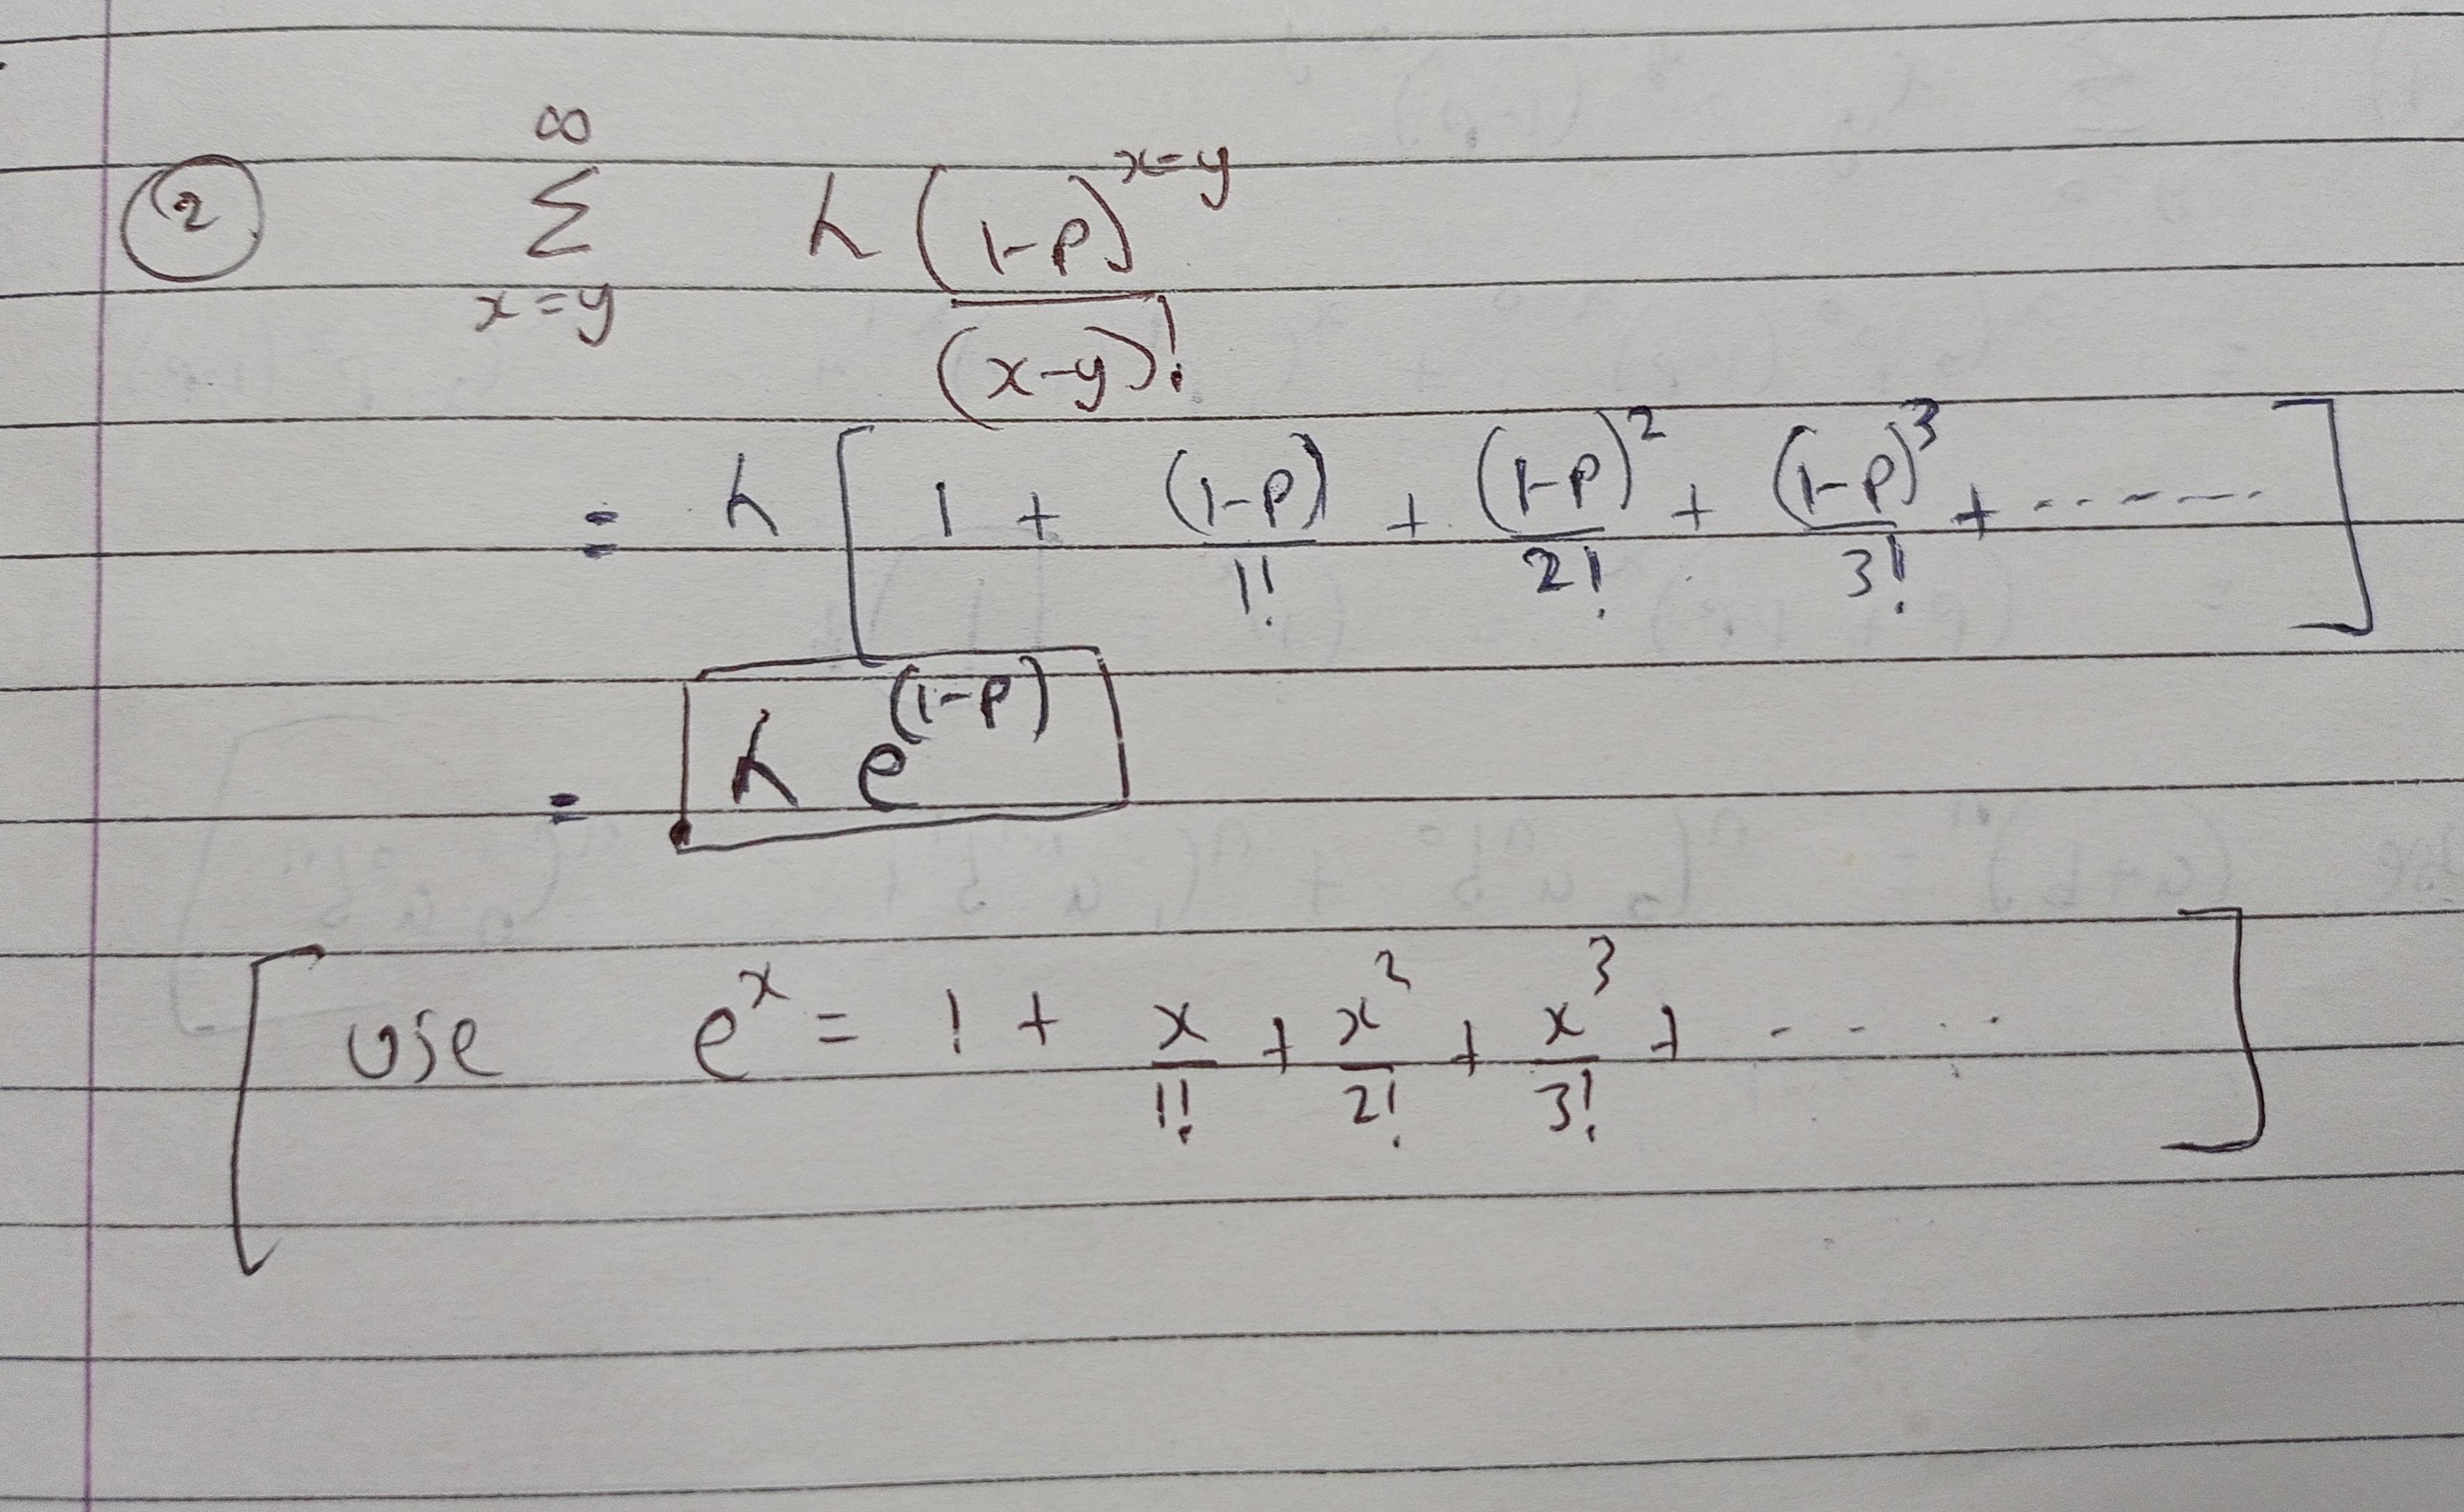 ② ∞ Σ x=y λ (1-p)^(x-y) / (x-y)!
= λ [ 1 + (1-p)/1! + (1-p)^2/2! + (1-p)^3/3! + ....... ]
= λ e^(1-p)
[ use e^x = 1 + x/1! + x^2/2! + x^3/3! + .... ]